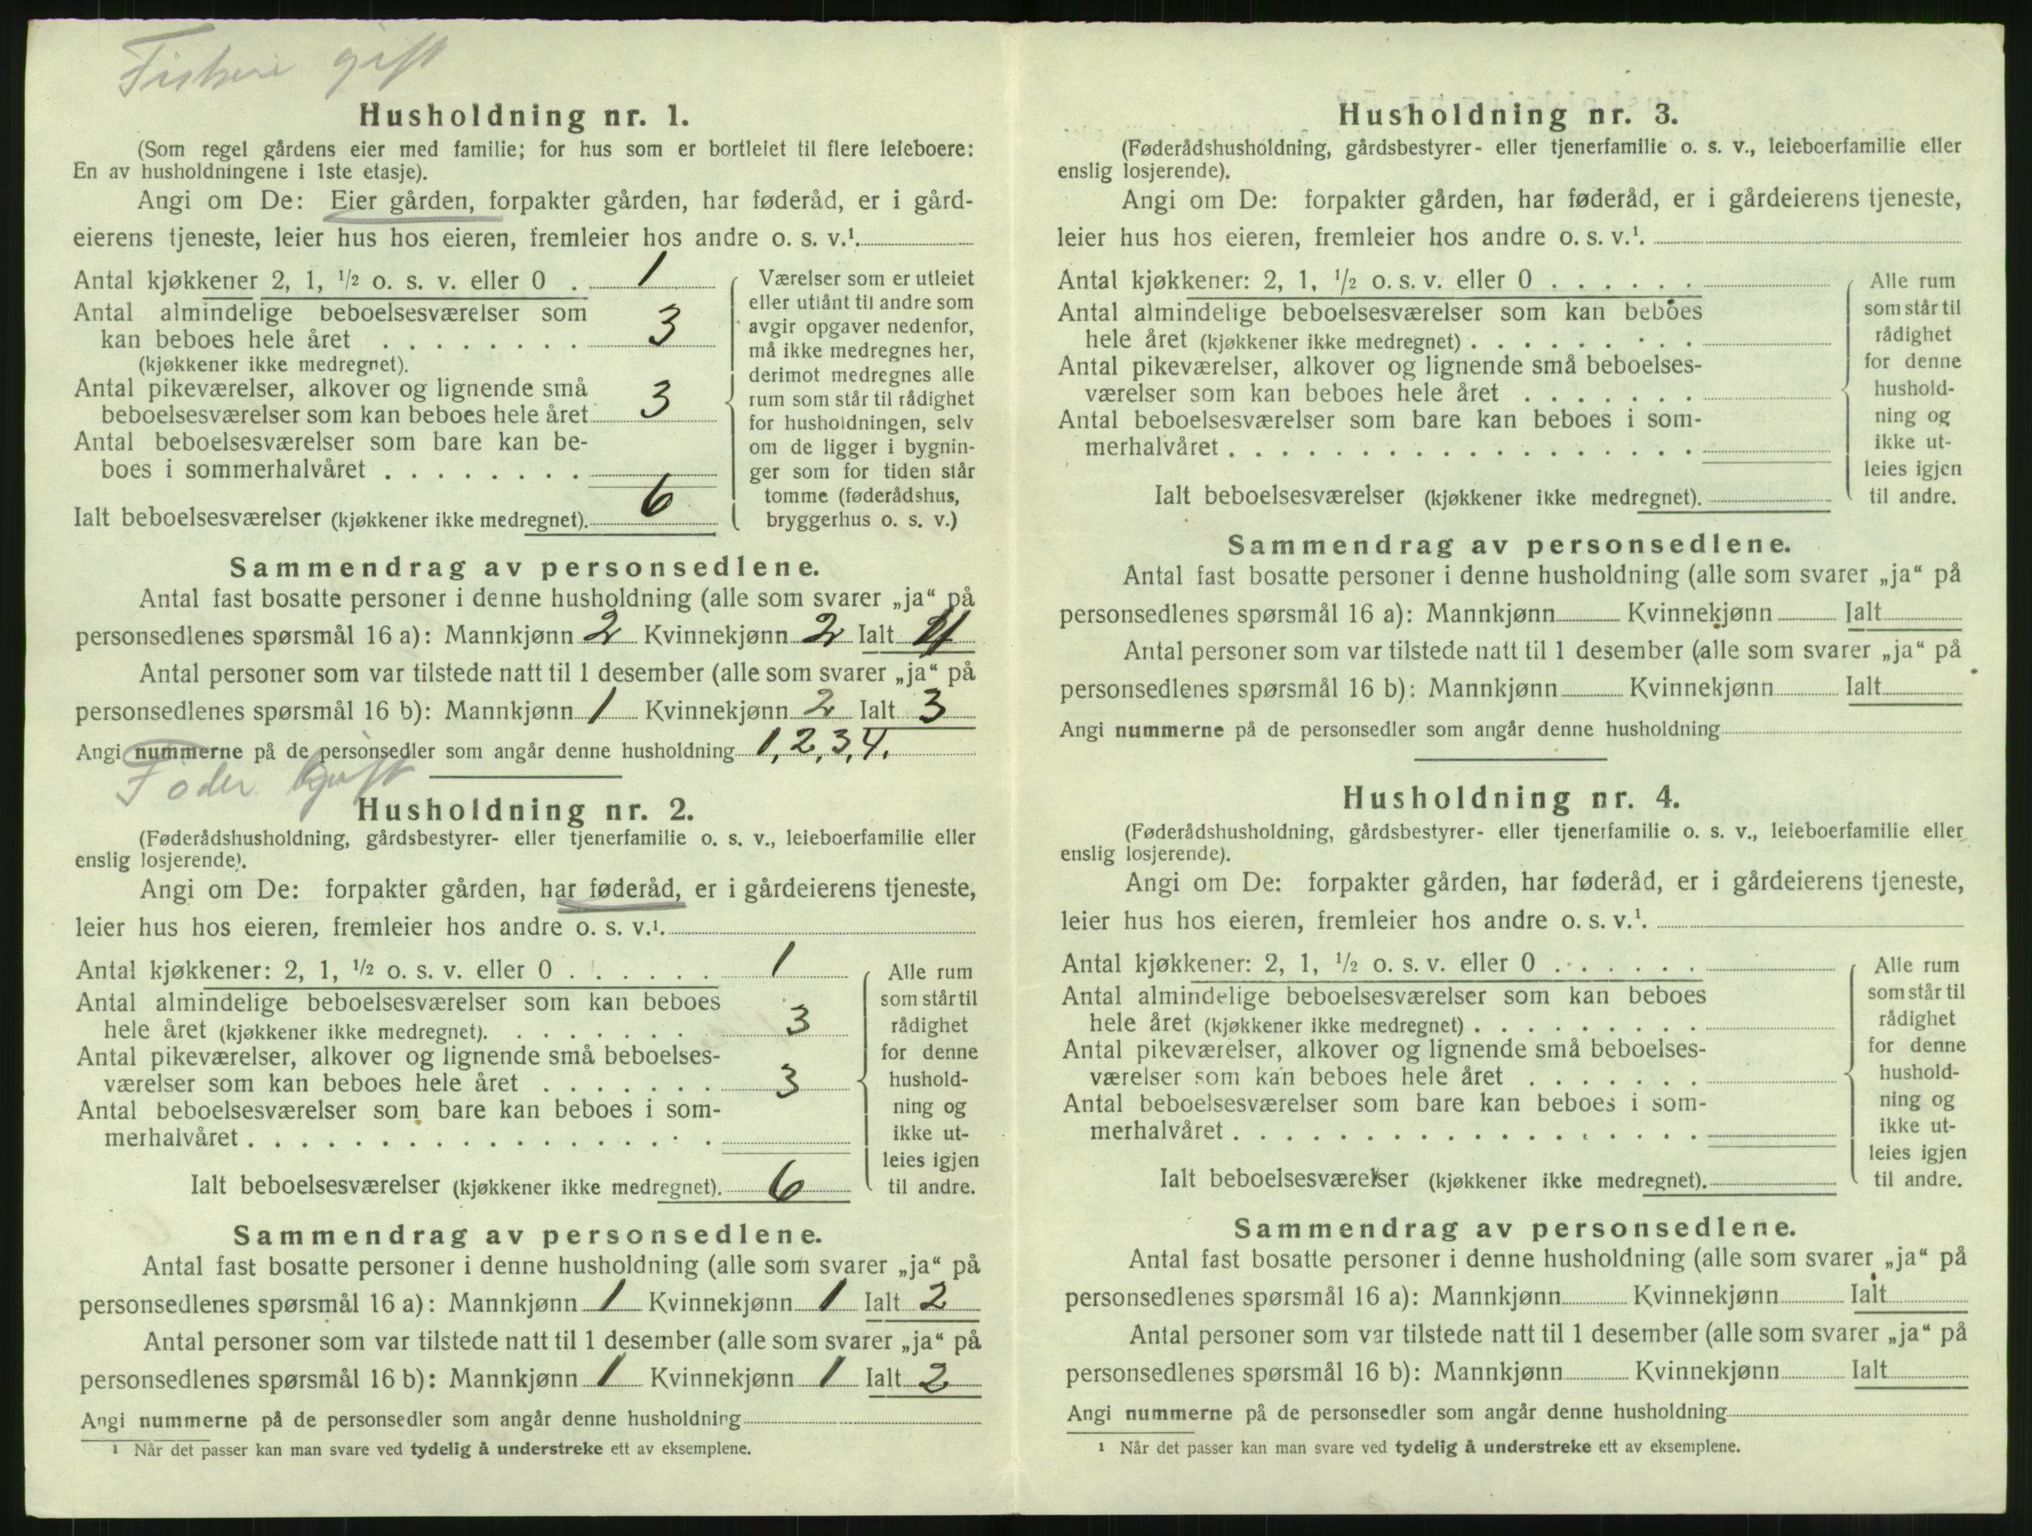 Fisker gift
Husholdning nr. 1.
(Som regel gårdens eier med familie; for hus som er bortleiet til flere leieboere:
En av husholdningene i 1ste etasje).
Angi om De: Eier gården, forpakter gården, har føderåd, er i gård-
eierens tjeneste, leier hus hos eieren, fremleier hos andre o. s. v.¹.
Antal kjøkkener 2, 1, ½ o. s. v. eller 0 . 1
Antal almindelige beboelsesværelser som
kan beboes hele året . . . . . . . . 3
(kjøkkener ikke medregnet).
Antal pikeværelser, alkover og lignende små
beboelsesværelser som kan beboes hele året 3
Antal beboelsesværelser som bare kan be-
boes i sommerhalvåret . . . . . . . .
Ialt beboelsesværelser (kjøkkener ikke medregnet). 6
Værelser som er utleiet
eller utlånt til andre som
avgir opgaver nedenfor,
må ikke medregnes her,
derimot medregnes alle
rum som står til rådighet
for husholdningen, selv
om de ligger i bygnin-
ger som for tiden står
tomme (føderådshus,
bryggerhus o. s. v.)
Sammendrag av personsedlene.
Antal fast bosatte personer i denne husholdning (alle som svarer „ja“ på
personsedlenes spørsmål 16 a): Mannkjønn 2 Kvinnekjønn 2 Ialt 4
Antal personer som var tilstede natt til 1 desember (alle som svarer „ja“ på
personsedlenes spørsmål 16 b): Mannkjønn 1 Kvinnekjønn 2 Ialt 3
Angi nummerne på de personsedler som angår denne husholdning 1, 2, 3, 4.
Føder gift
Husholdning nr. 2.
(Føderådshusholdning, gårdsbestyrer- eller tjenerfamilie o. s. v., leieboerfamilie eller
enslig losjerende).
Angi om De: forpakter gården, har føderåd, er i gårdeierens tjeneste,
leier hus hos eieren, fremleier hos andre o. s. v.¹.
Antal kjøkkener: 2, 1, ½ o. s. v. eller 0 . . . . . . 1
Antal almindelige beboelsesværelser som kan beboes
hele året (kjøkkener ikke medregnet). . . . . . . . 3
Antal pikeværelser, alkover og lignende små beboelses-
værelser som kan beboes hele året . . . . . . . 3
Antal beboelsesværelser som bare kan beboes i som-
merhalvåret . . . . . . . . . . . . . . . . . .
Ialt beboelsesværelser (kjøkkener ikke medregnet). 6
Alle rum
som står til
rådighet
for denne
hushold-
ning og
ikke ut-
leies igjen
til andre.
Sammendrag av personsedlene.
Antal fast bosatte personer i denne husholdning (alle som svarer „ja“ på
personsedlenes spørsmål 16 a): Mannkjønn 1 Kvinnekjønn 1 Ialt 2
Antal personer som var tilstede natt til 1 desember (alle som svarer „ja“ på
personsedlenes spørsmål 16 b): Mannkjønn 1 Kvinnekjønn 1 Ialt 2
Angi nummerne på de personsedler som angår denne husholdning
¹ Når det passer kan man svare ved tydelig å understreke ett av eksemplene.
Husholdning nr. 3.
(Føderådshusholdning, gårdsbestyrer- eller tjenerfamilie o. s. v., leieboerfamilie eller
enslig losjerende).
Angi om De: forpakter gården, har føderåd, er i gårdeierens tjeneste,
leier hus hos eieren, fremleier hos andre o. s. v.¹.
Antal kjøkkener: 2, 1, ½ o. s. v. eller 0 . . . . . .
Antal almindelige beboelsesværelser som kan beboes
hele året (kjøkkener ikke medregnet) . . . . . . . . .
Antal pikeværelser, alkover og lignende små beboelses-
værelser som kan beboes hele året . . . . . . .
Antal beboelsesværelser som bare kan beboes i som-
merhalvåret . . . . . . . . . . . . . . . . . .
Ialt beboelsesværelser (kjøkkener ikke medregnet).
Alle rum
som står til
rådighet
for denne
hushold-
ning og
ikke ut-
leies igjen
til andre.
Sammendrag av personsedlene.
Antal fast bosatte personer i denne husholdning (alle som svarer „ja“ på
personsedlenes spørsmål 16 a): Mannkjønn Kvinnekjønn Ialt
Antal personer som var tilstede natt til 1 desember (alle som svarer „ja“ på
personsedlenes spørsmål 16 b): Mannkjønn Kvinnekjønn Ialt
Angi nummerne på de personsedler som angår denne husholdning
Husholdning nr. 4.
(Føderådshusholdning, gårdsbestyrer- eller tjenerfamilie o. s. v., leieboerfamilie eller
enslig losjerende).
Angi om De: forpakter gården, har føderåd, er i gårdeierens tjeneste,
leier hus hos eieren, fremleier hos andre o. s. v.¹.
Antal kjøkkener: 2, 1, ½ o. s. v. eller 0 . . . . . .
Antal almindelige beboelsesværelser som kan beboes
hele året (kjøkkener ikke medregnet) . . . . . . . . .
Antal pikeværelser, alkover og lignende små beboelses-
værelser som kan beboes hele året . . . . . . .
Antal beboelsesværelser som bare kan beboes i som-
merhalvåret . . . . . . . . . . . . . . . . . .
Ialt beboelsesværelser (kjøkkener ikke medregnet).
Alle rum
som står til
rådighet
for denne
hushold-
ning og
ikke ut-
leies igjen
til andre.
Sammendrag av personsedlene.
Antal fast bosatte personer i denne husholdning (alle som svarer „ja“ på
personsedlenes spørsmål 16 a): Mannkjønn Kvinnekjønn Ialt
Antal personer som var tilstede natt til 1 desember (alle som svarer „ja“ på
personsedlenes spørsmål 16 b): Mannkjønn Kvinnekjønn Ialt
Angi nummerne på de personsedler som angår denne husholdning
¹ Når det passer kan man svare ved tydelig å understreke ett av eksemplene.